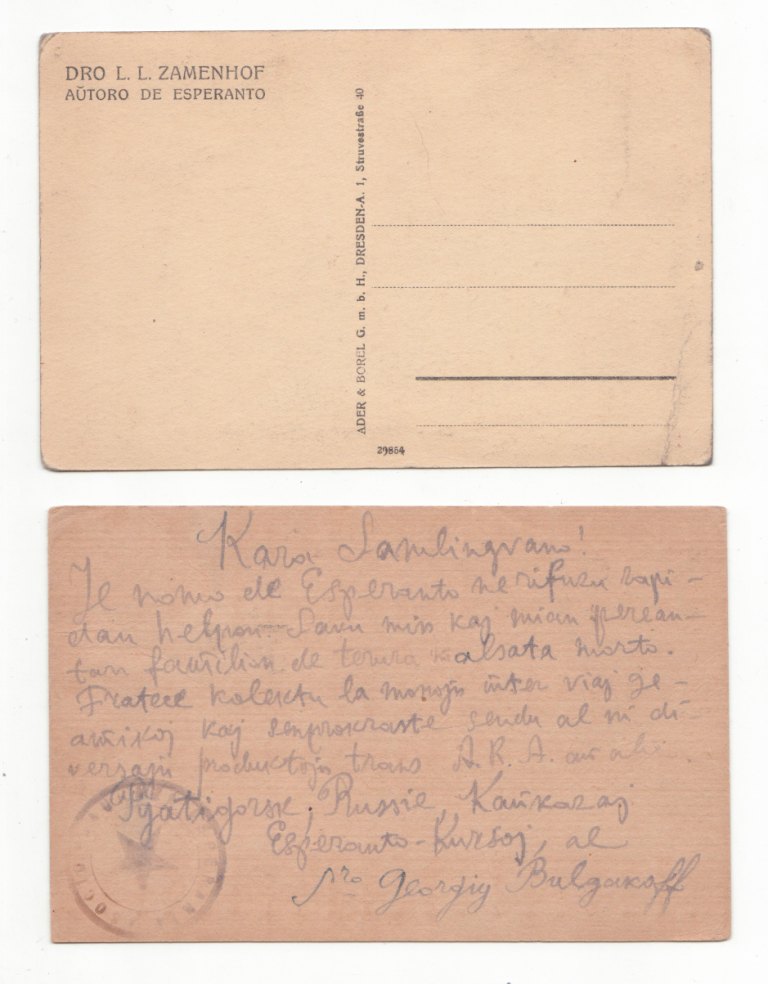 DRO L. L. ZAMENHOF
AŬTORO DE ESPERANTO
ADER & BOREL G. m. b. H., DRESDEN-A. 1, Struvestraße 40
29864
Kara Samlingvano!
Je nomo de Esperanto ne rifuzu rapi-
dan helpon. Savu min kaj mian perean-
tan familion de terura malsata morto.
Fratece kolektu la monojn inter viaj ge-
amikoj kaj senprokraste sendu al ni di-
versajn produktojn trans A. R. A. aŭ alie.
Pyatigorsk, Russie, Kaŭkazaj
Esperanto-Kursoj, al
Georgiy Bulgakoff